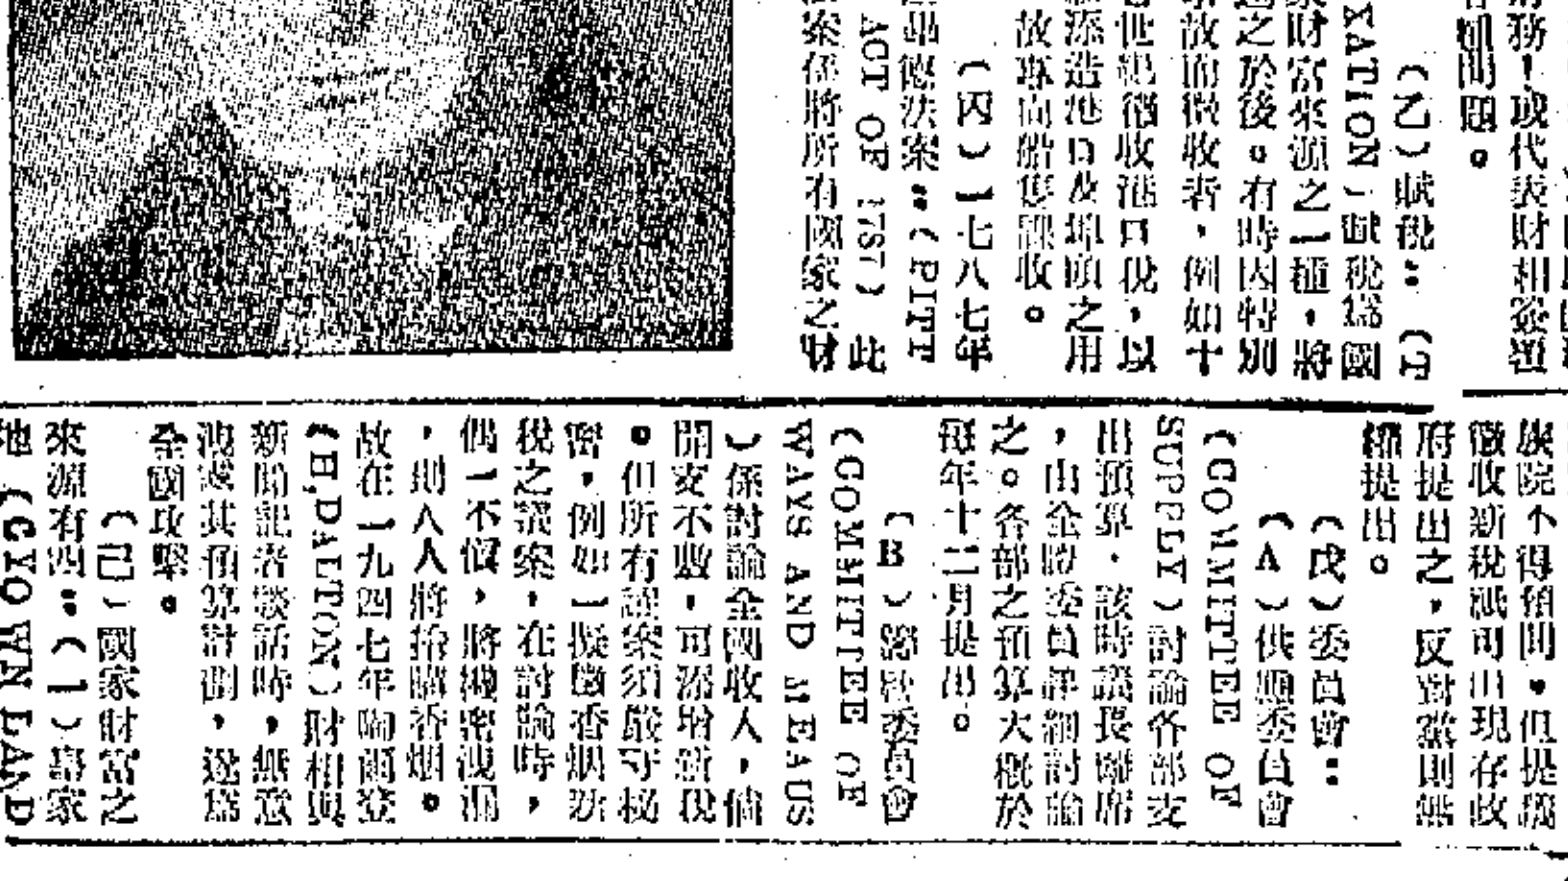 財務!或代表財相簽題
問題。
(乙)賦稅:(T
XATION)賦稅爲國
家財富來源之一種,將
之於後。有時因特別
故而徵收者,例如十
世紀徵收港口稅,以
添造港口及埠頭之用
故專向船隻課收。
(丙)一七八七年
出德法案:(PITT
ACT OF 1787)此
案係將所有國家之財
族院不得預聞。但提議
徵收新稅祇可由現存政
府提出之,反對黨則無
提出。
(戊)委員會:
(A)供應委員會
(COMMITTEE OF
SUPPLY)討論各部支
出預算,該時議長離席
,由全院委員詳細討論
之。各部之預算大概於
每年十二月提出。
(B)籌款委員會
(COMMITTEE OF
WAYS AND MEAUS
)係討論全國收入,倘
開支不敷,可添增新稅
。但所有議案須嚴守秘
密,例如一擬徵香烟新
稅之議案,在討論時,
偶一不慎,將機密洩漏
,則人人將搶購香烟。
故在一九四七年陶爾登
(H,DALTON)財相與
新聞記者談話時,無意
洩漏其預算計劃,遂爲
全國攻擊。
(己)國家財富之
來源有四:(1)皇家
地(CYOWN LAND